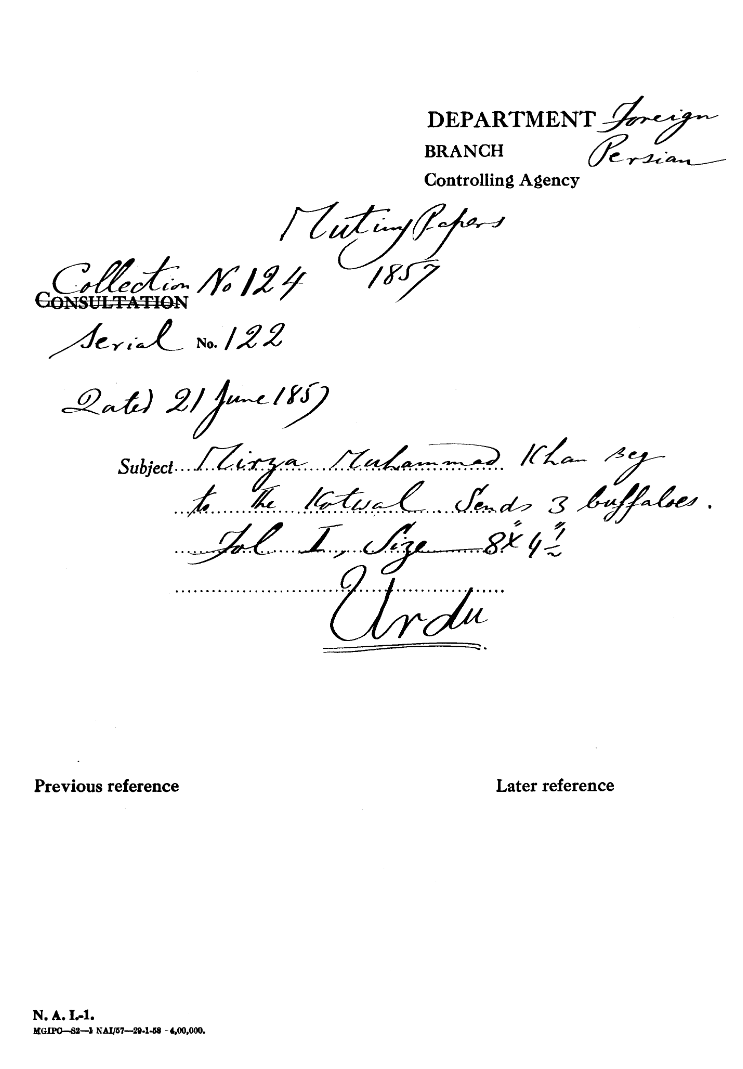 DEPARTMENT Foreign
BRANCH Persian
Controlling Agency
Mutiny Papers
1857
Collection No 124
CONSULTATION
Serial No. 122
Dated 21 June 1857
Subject Mirza Muhammad Khan Beg
to the Kotwal Sends 3 buffaloes.
Fol I, Size 8" x 4 1/2"
Urdu
Previous reference Later reference
N. A. I.-1.
MGIPC—S2—3 NAI/57—29-1-58 - 4,00,000.